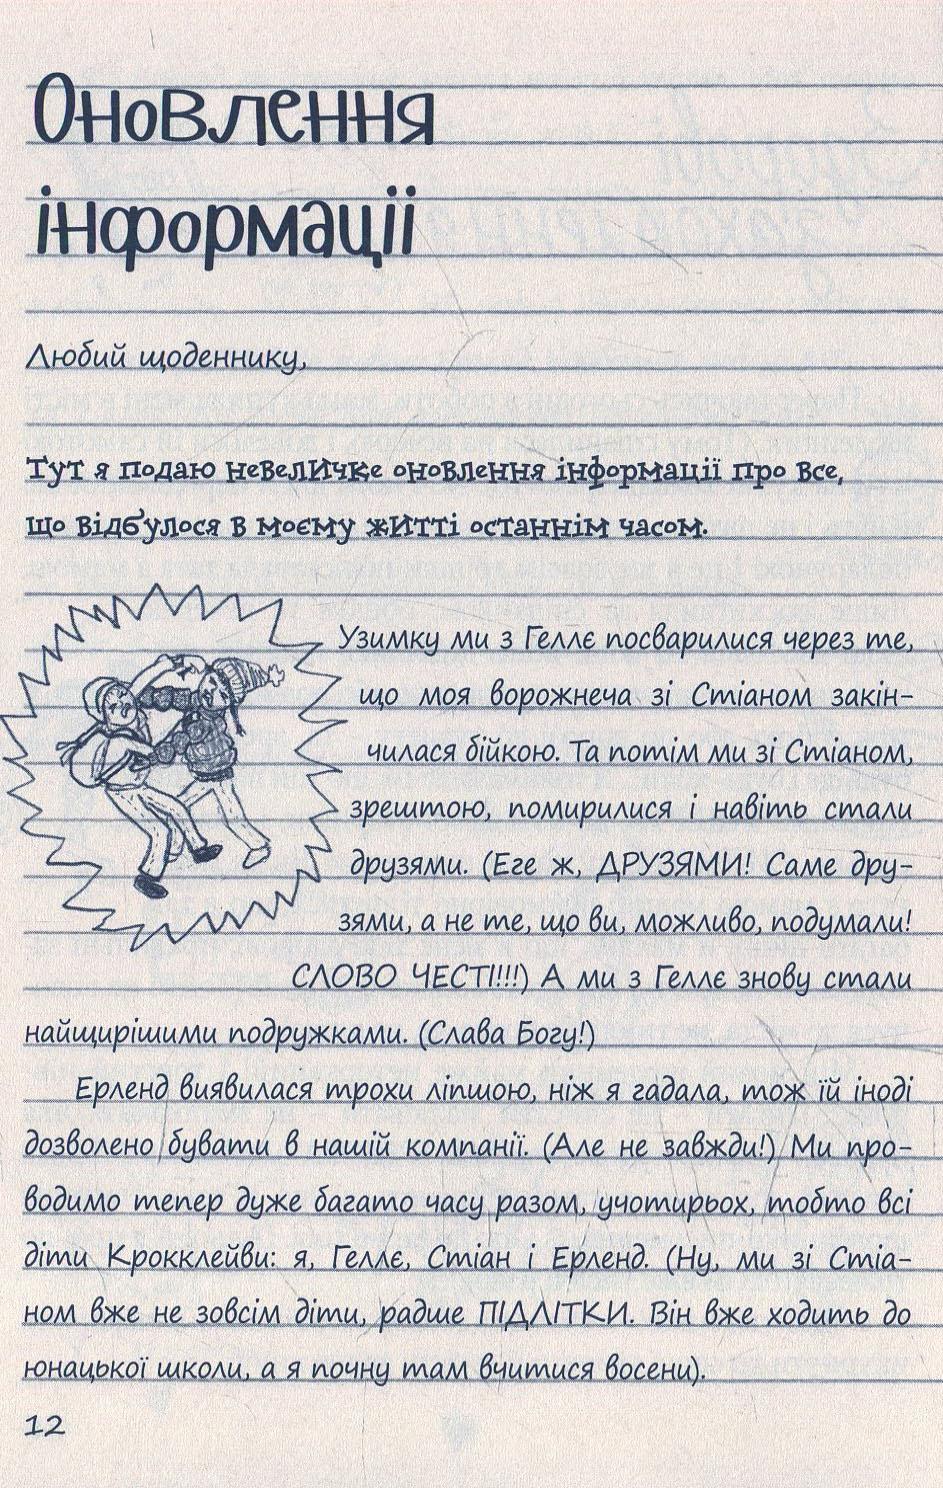 Оновлення
інформації
Любий щоденнику,
Тут я подаю невеличке оновлення інформації про все,
що відбулося в моєму житті останнім часом.
Узимку ми з Геллє посварилися через те,
що моя ворожнеча зі Стіаном закін-
чилася бійкою. Та потім ми зі Стіаном,
зрештою, помирилися і навіть стали
друзями. (Еге ж, ДРУЗЯМИ! Саме дру-
зями, а не те, що ви, можливо, подумали!
СЛОВО ЧЕСТІ!!!) А ми з Геллє знову стали
найщирішими подружками. (Слава Богу!)
Ерленд виявилася трохи ліпшою, ніж я гадала, тож їй іноді
дозволено бувати в нашій компанії. (Але не завжди!) Ми про-
водимо тепер дуже багато часу разом, учотирьох, тобто всі
діти Крокклейви: я, Геллє, Стіан і Ерленд. (Ну, ми зі Стіа-
ном вже не зовсім діти, радше ПІДЛІТКИ. Він вже ходить до
юнацької школи, а я почну там вчитися восени).
12